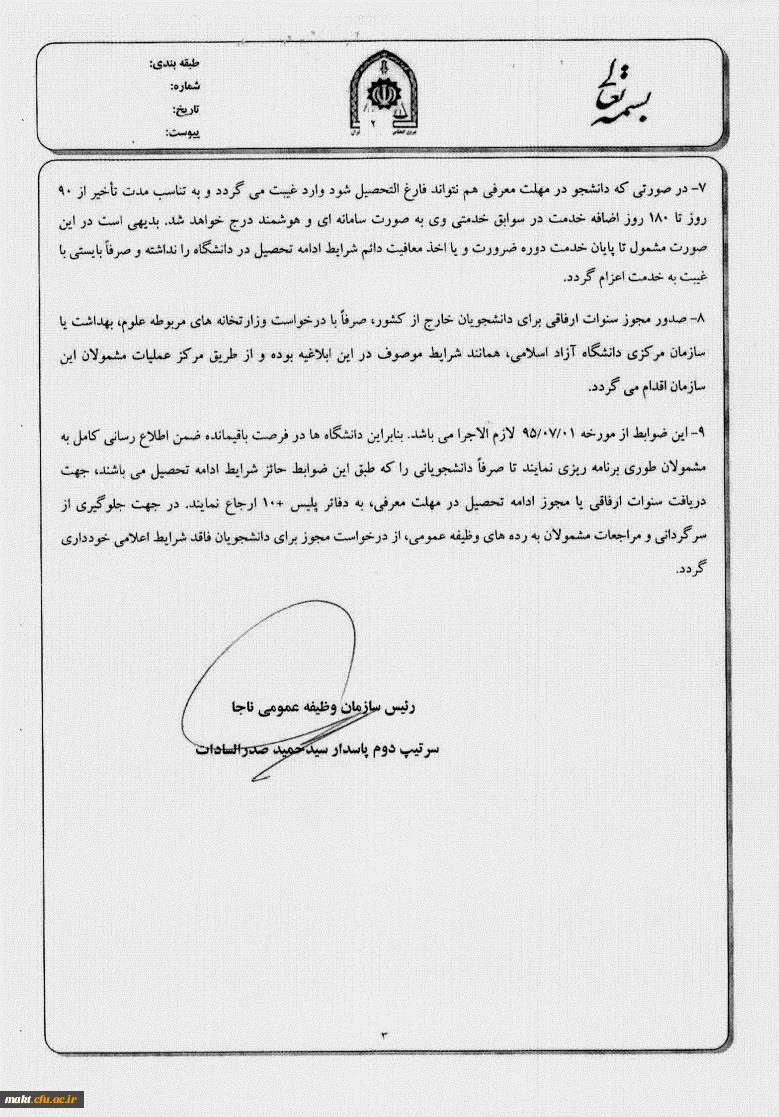 بسمه تعالی
طبقه بندی:
شماره:
تاریخ:
پیوست:
۲
۷- در صورتی که دانشجو در مهلت معرفی هم نتواند فارغ التحصیل شود وارد غیبت می گردد و به تناسب مدت تأخیر از ۹۰
روز تا ۱۸۰ روز اضافه خدمت در سوابق خدمتی وی به صورت سامانه ای و هوشمند درج خواهد شد. بدیهی است در این
صورت مشمول تا پایان خدمت دوره ضرورت و یا اخذ معافیت دائم شرایط ادامه تحصیل در دانشگاه را نداشته و صرفاً بایستی با
غیبت به خدمت اعزام گردد.
۸- صدور مجوز سنوات ارفاقی برای دانشجویان خارج از کشور، صرفاً با درخواست وزارتخانه های مربوطه علوم، بهداشت یا
سازمان مرکزی دانشگاه آزاد اسلامی، همانند شرایط موصوف در این ابلاغیه بوده و از طریق مرکز عملیات مشمولان این
سازمان اقدام می گردد.
۹- این ضوابط از مورخه ۹۵/۰۷/۰۱ لازم الاجرا می باشد. بنابراین دانشگاه ها در فرصت باقیمانده ضمن اطلاع رسانی کامل به
مشمولان طوری برنامه ریزی نمایند تا صرفاً دانشجویانی را که طبق این ضوابط حائز شرایط ادامه تحصیل می باشند، جهت
دریافت سنوات ارفاقی یا مجوز ادامه تحصیل در مهلت معرفی، به دفاتر پلیس +۱۰ ارجاع نمایند. در جهت جلوگیری از
سرگردانی و مراجعات مشمولان به رده های وظیفه عمومی، از درخواست مجوز برای دانشجویان فاقد شرایط اعلامی خودداری
گردد.
رئیس سازمان وظیفه عمومی ناجا
سرتیپ دوم پاسدار سیدحمید صدرالسادات
۳
makt.cfu.ac.ir